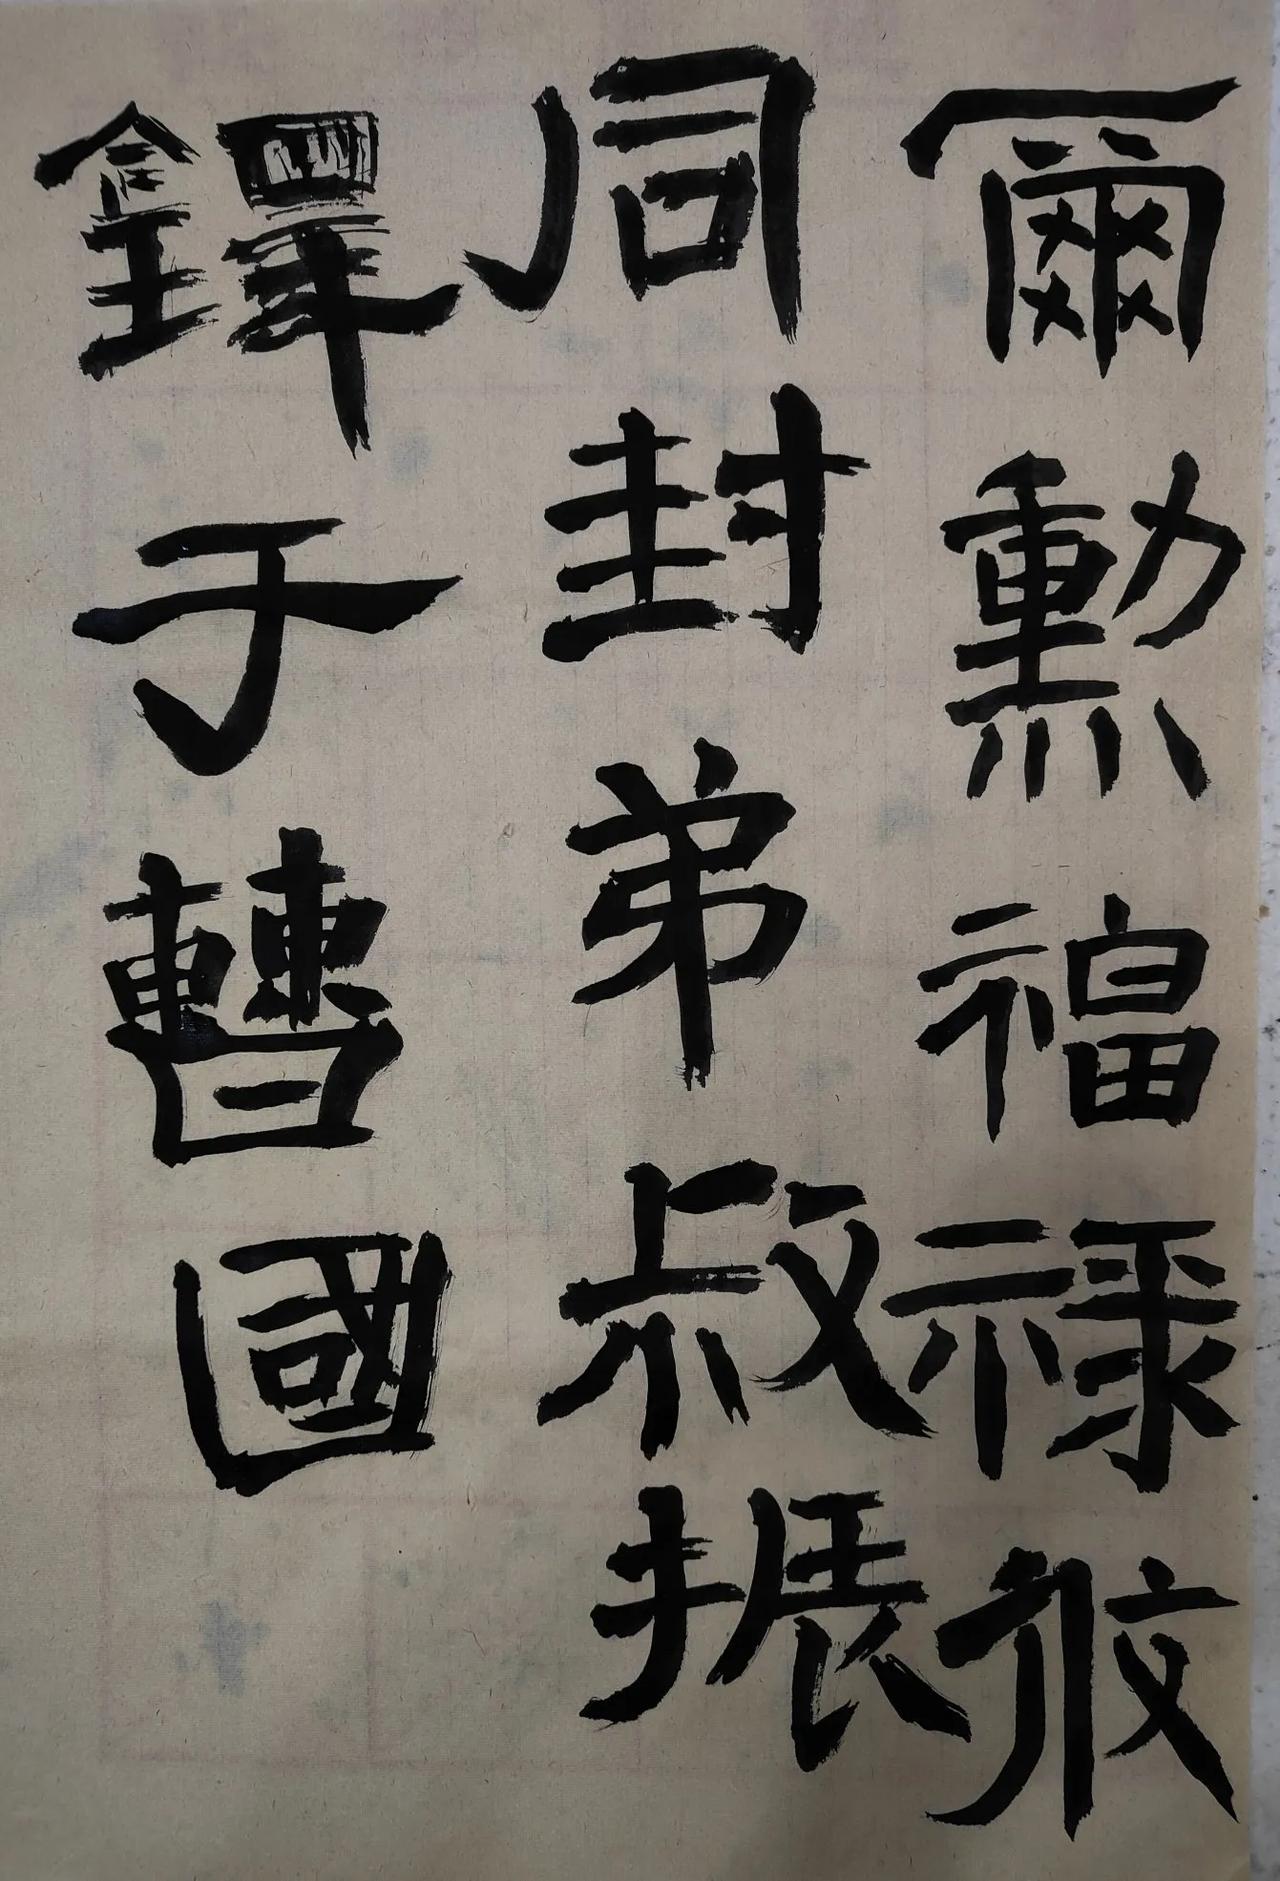 爾勳福祿攸
同封弟叔振
鐸于曹國